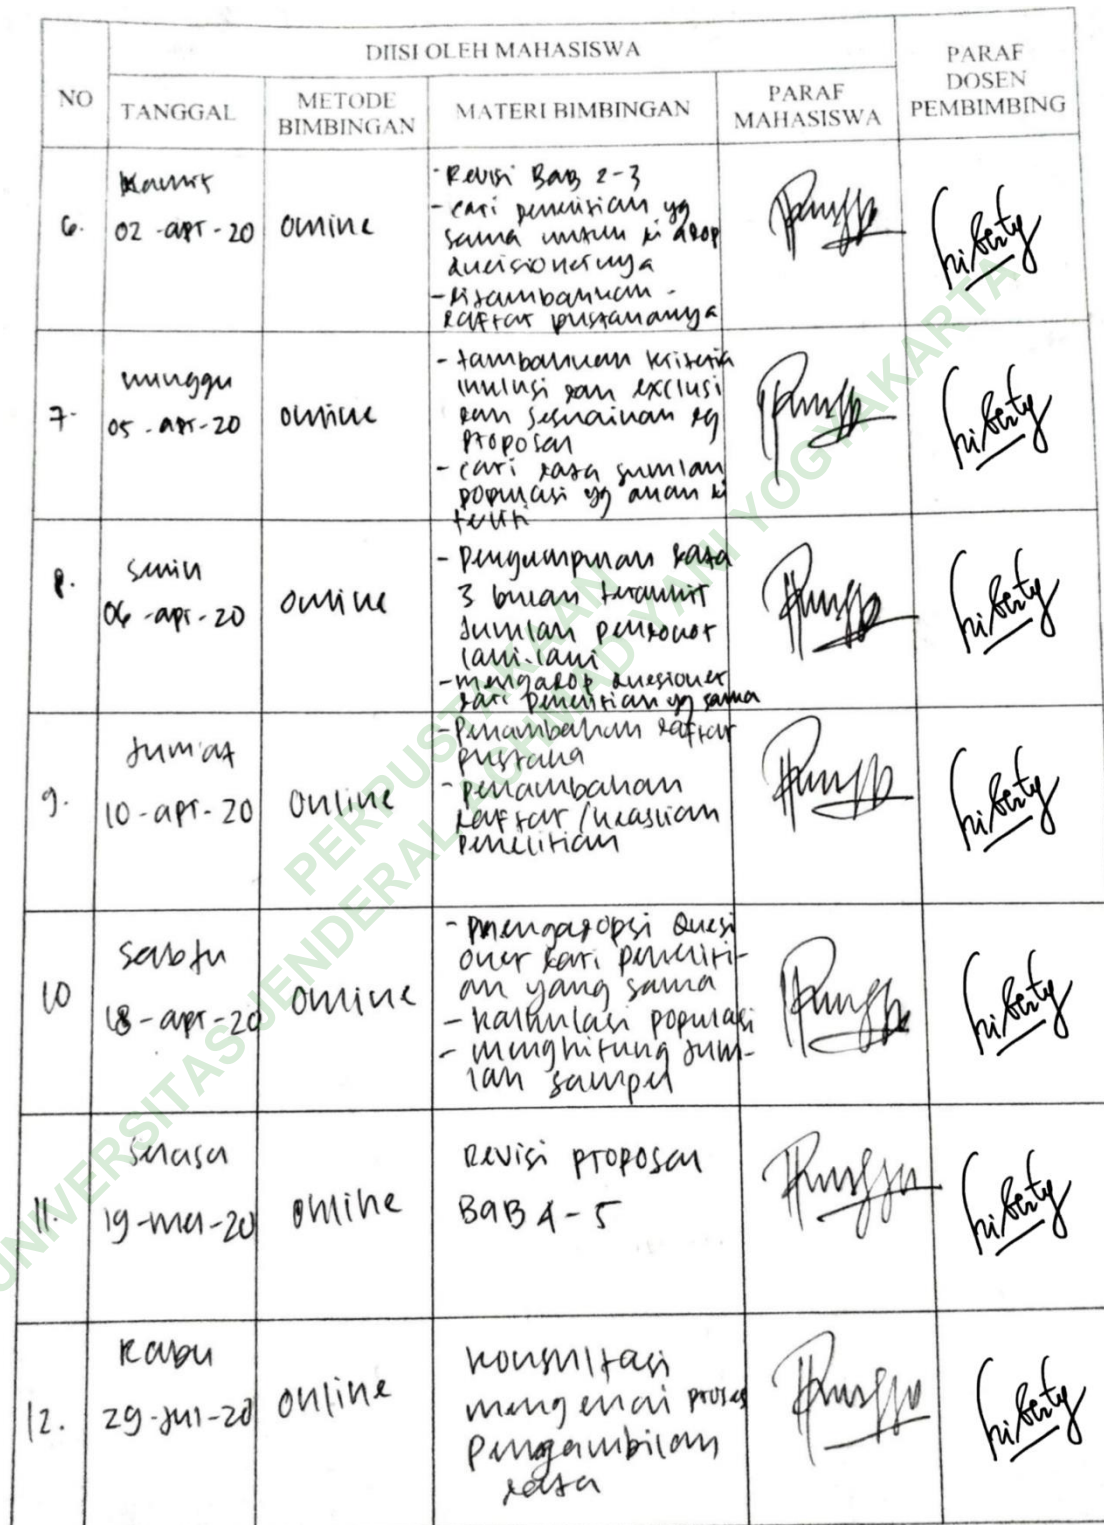 DIISI OLEH MAHASISWA
NO
TANGGAL
METODE
BIMBINGAN
MATERI BIMBINGAN
PARAF
MAHASISWA
PARAF
DOSEN
PEMBIMBING
6.
Kamis
02-apr-20
online
- Revisi Bab 2-3
- cari penelitian yg
sama untuk di adop
quisionernya
- ditambahkan
daftar pustakanya
liberty
7.
minggu
05-apr-20
online
- tambahkan kriteria
inklusi dan exclusi
dan sesuaikan dg
proposal
- cari data jumlah
populasi yg akan di
teliti
liberty
8.
senin
06-apr-20
online
- Pengumpulan data
3 bulan terakhir
jumlah pendonor
laki-laki
- mengadop quesioner
dari penelitian yg sama
liberty
9.
Jumat
10-apr-20
Online
- Penambahan daftar
pustaka
- penambahan
daftar/keaslian
penelitian
liberty
10
Sabtu
18-apr-20
online
- mengadopsi Quesi
oner dari peneliti-
an yang sama
- kalkulasi populasi
- menghitung jum-
lah sampel
liberty
11.
Selasa
19-mei-20
online
Revisi proposal
BAB 4-5
liberty
12.
Rabu
29-jul-20
online
konsultasi
mengenai proses
pengambilan
data
liberty
PERPUSTAKAAN
UNIVERSITAS JENDERAL ACHMAD YANI YOGYAKARTA